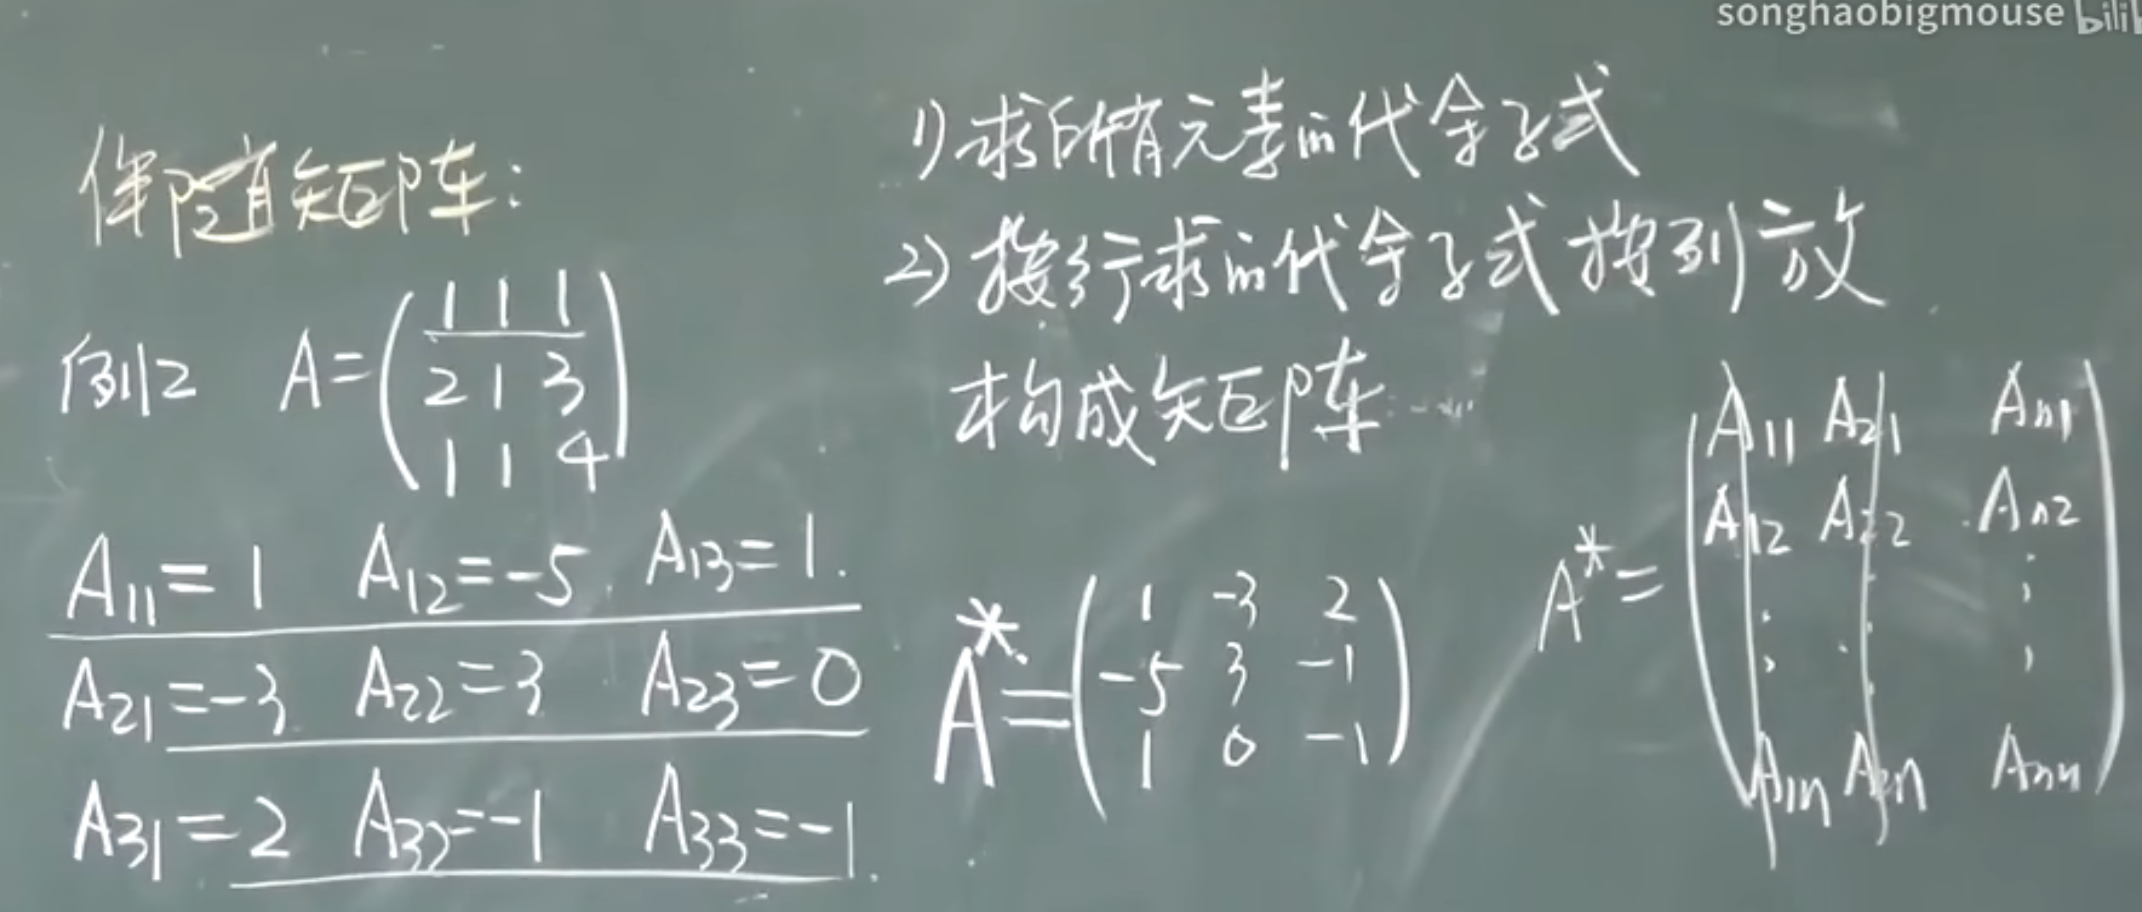 songhaobigmouse bili
伴随矩阵:
例2 A=(1 1 1
2 1 3
1 1 4)
A11=1 A12=-5 A13=1.
A21=-3 A22=3 A23=0
A31=2 A32=-1 A33=-1.
1)求所有元素的代余子式
2)按行求的代余子式按列放
构成矩阵
A*=(1 -3 2
-5 3 -1
1 0 -1)
A*=(A11 A21 An1
A12 A22 An2
A1n A2n Ann)